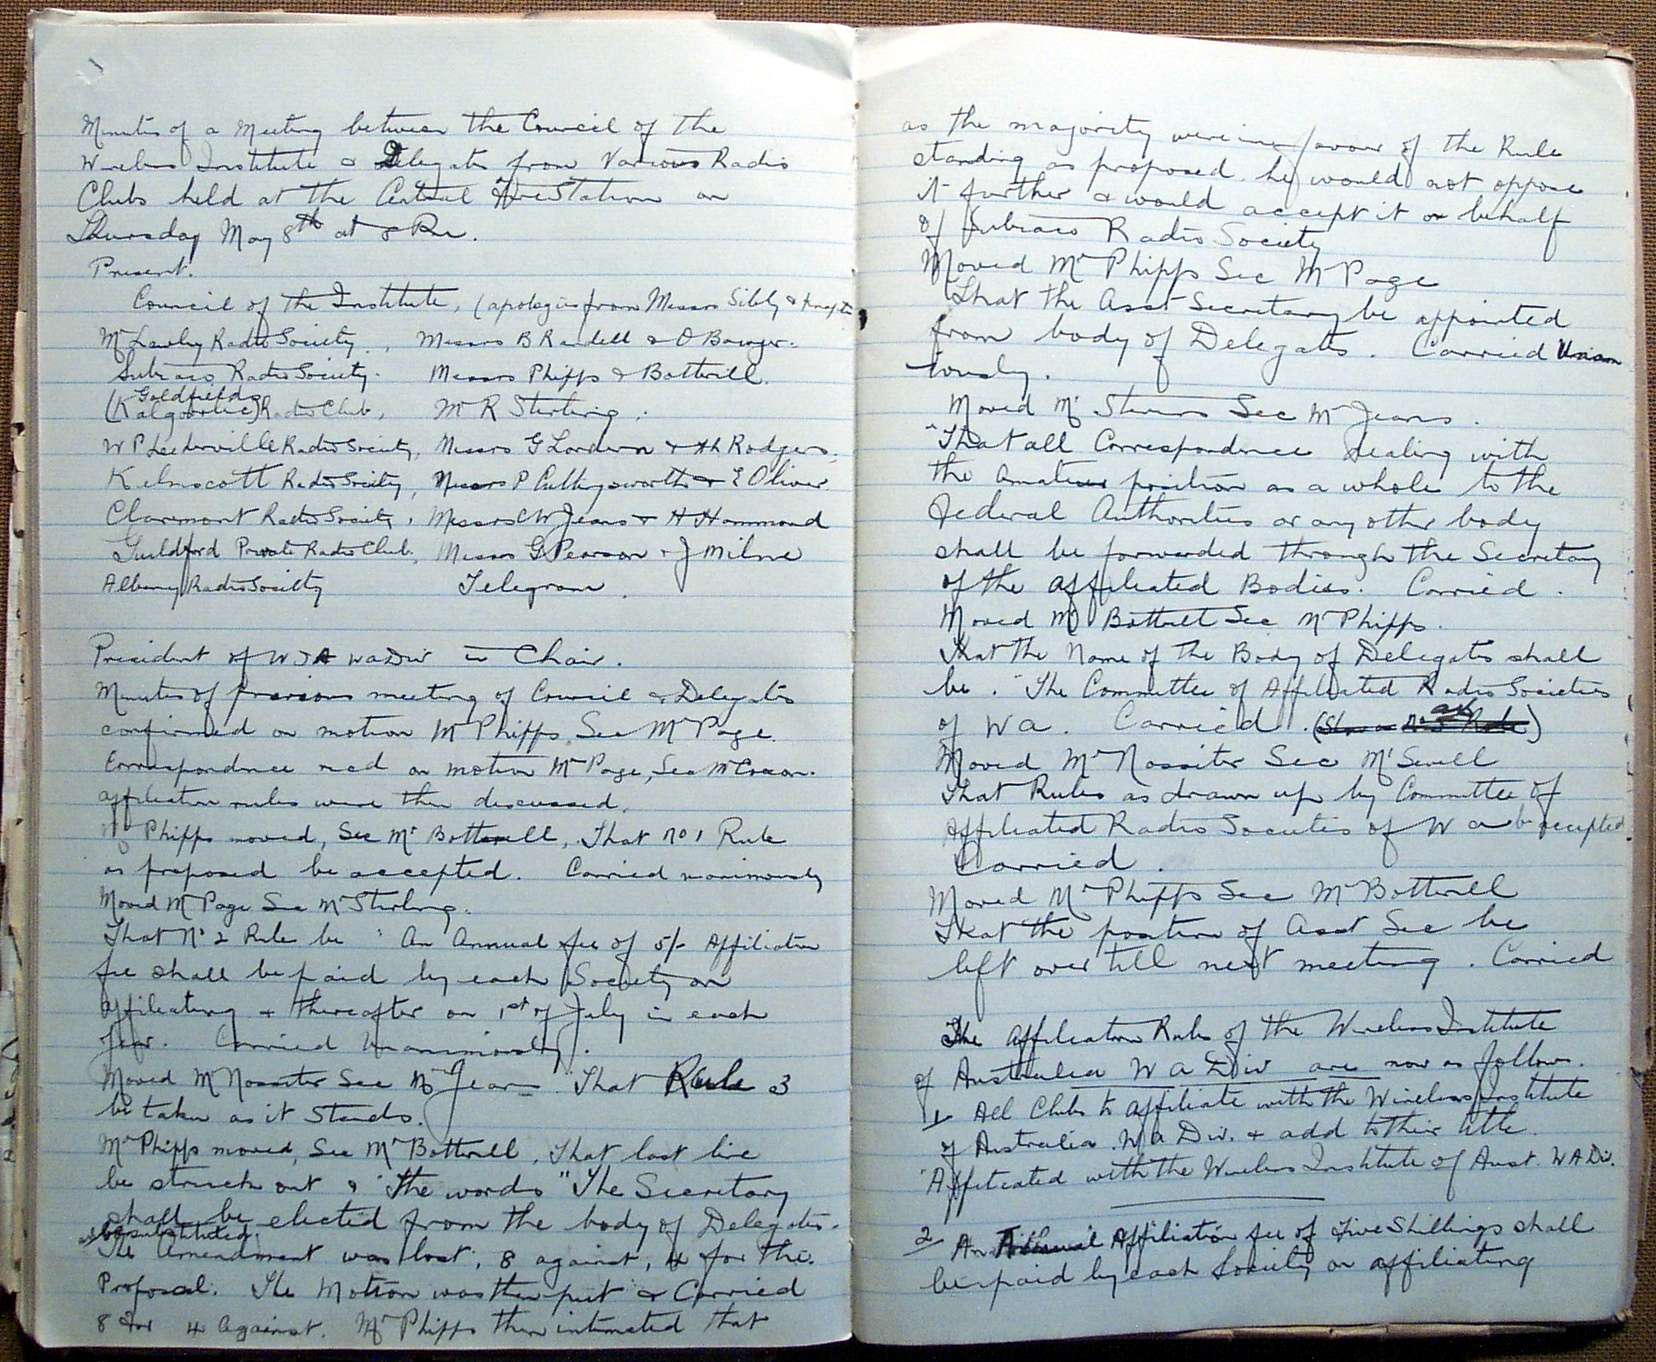 Minutes of a Meeting between the Council of the
Wireless Institute & Delegates from Various Radio
Clubs held at the Central Fire Station on
Thursday May 8th at 8 Pm.
Present.
Council of the Institute, (apologies from Messrs Sibly &
Mt Lawley Radio Society, Messrs B Randell & O Bauger.
Subiaco Radio Society. Messrs Phipps & Bottrell.
Goldfields
(Kalgoorlie) Radio Club, Mr R Sterling.
W P Leederville Radio Society, Messrs G & Hh Rodgers.
Kelmscott Radio Society, Messrs P Cuttingsworth & E Oliver
Claremont Radio Society, Messrs CW Jeans & H Hammond
Guildford Private Radio Club. Messrs G Pearson & J Milne
Albany Radio Society Telegram.
President of WIA WA Div in Chair.
Minutes of previous meeting of Council & Delegates
confirmed on motion Mr Phipps, Sec Mr Page.
Correspondence read on motion Mr Page, Sec Mr Coxon.
affiliation rules were then discussed.
Mr Phipps moved, Sec Mr Bottrell, That No 1 Rule
as proposed be accepted. Carried unanimously
Moved Mr Page Sec Mr Sterling.
That No 2 Rule be "An Annual fee of 5/- Affiliation
fee shall be paid by each Society on
affiliating & thereafter on 1st of July in each
Year. Carried Unanimously.
Moved Mr Nossiter Sec Mr Jeans "That Rule 3
be taken as it stands.
Mr Phipps moved, Sec Mr Bottrell, That last line
be struck out & "The words "The Secretary
shall be elected from the body of Delegates.
be substituted.
The Amendment was lost, 8 against, 4 for the.
Proposal. The Motion was then put & Carried
8 For 4 Against. Mr Phipps then intimated that
as the majority were in favour of the Rule
standing as proposed he would not oppose
it further & would accept it on behalf
of Subiaco Radio Society
Moved Mr Phipps Sec Mr Page
That the Asst Secretary be appointed
from body of Delegates. Carried Unam
iously.
Moved Mr Stevens Sec Mr Jeans.
"That all Correspondence dealing with
the Amateur position as a whole to the
Federal Authorities or any other body
shall be forwarded through the Secretary
of the Affiliated Bodies. Carried.
Moved Mr Bottrell Sec Mr Phipps.
That the Name of the Body of Delegates shall
be. "The Committee of Affiliated Radio Societies
of W a. Carried.
Moved Mr Nossiter Sec Mr Sewell
That Rules as drawn up by Committee of
Affiliated Radio Societies of W a be accepted
Carried.
Moved Mr Phipps Sec Mr Bottrell
That the position of Asst Sec be
left over till next meeting. Carried
The Affiliation Rules of the Wireless Institute
of Australia W A Div are now as follows.
1 All Clubs to affiliate with the Wireless Institute
of Australia. W a Div. & add to their title.
"Affiliated with the Wireless Institute of Aust. W A Div.
2 An Annual Affiliation fee of Five Shillings shall
be paid by each Society on affiliating